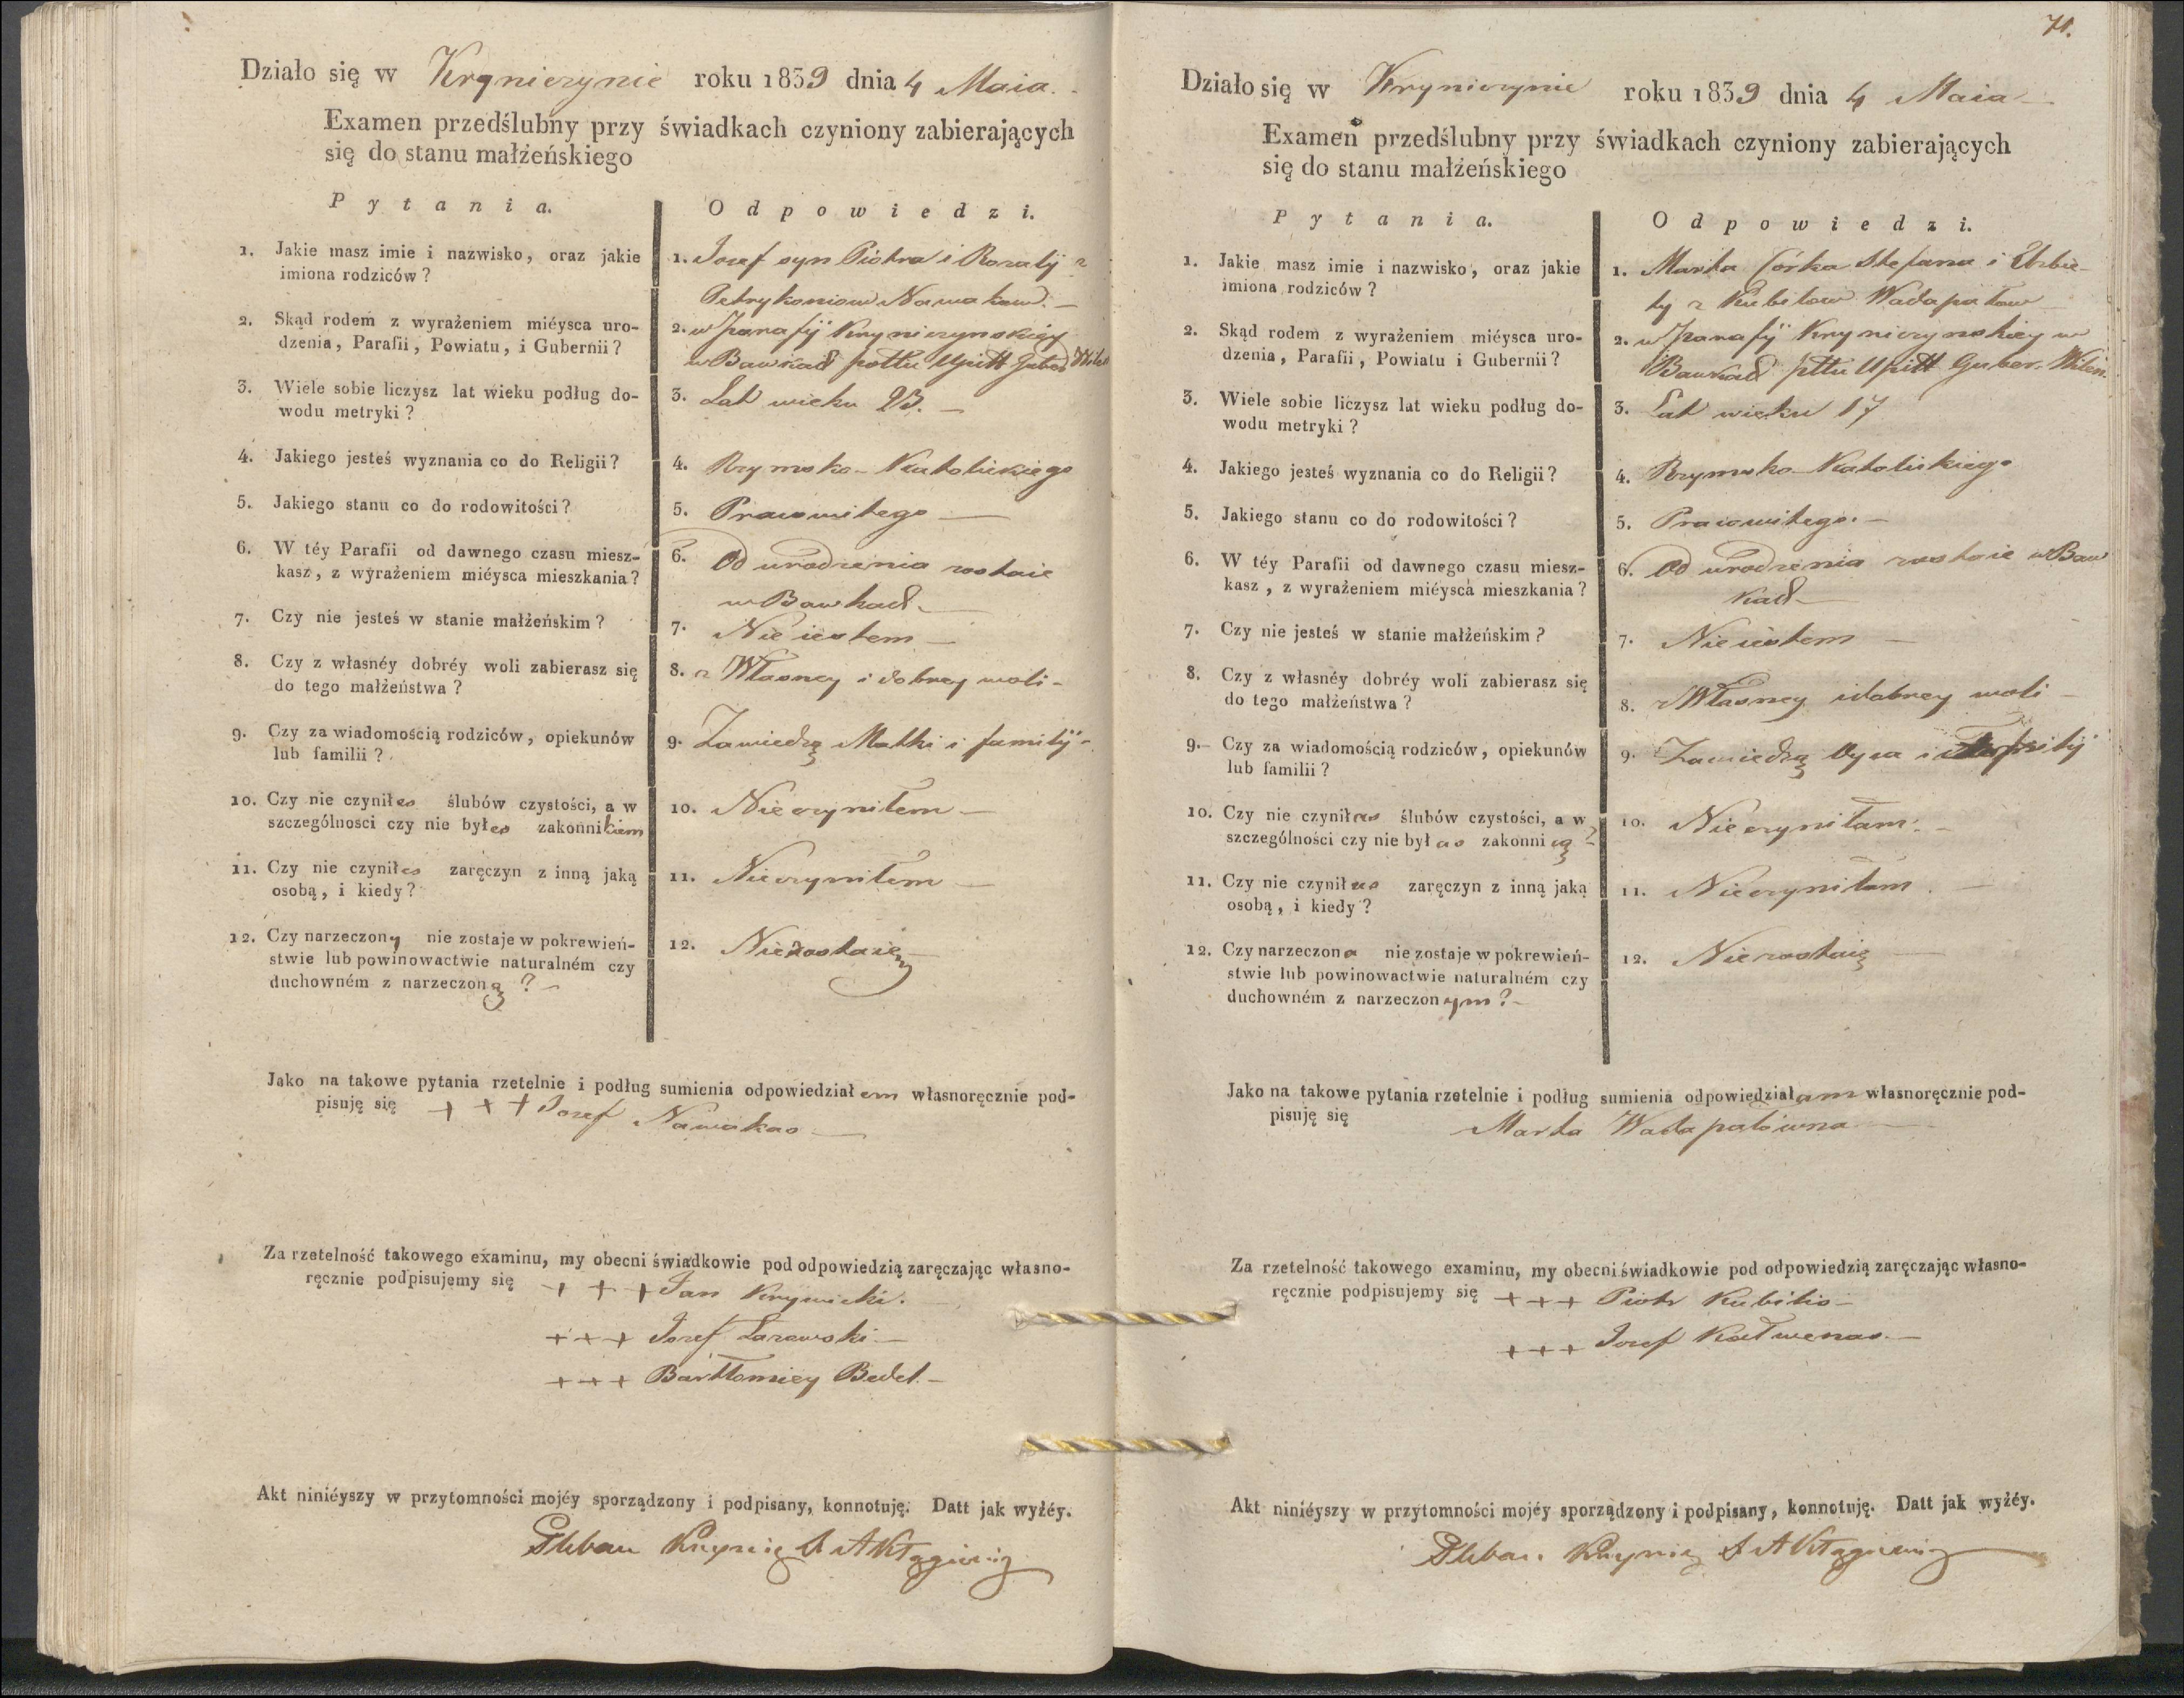 Działo się w Kryniczynie roku 1839 dnia 4 Maia.
Examen przedślubny przy świadkach czyniony zabierających
się do stanu małżeńskiego
Pytania.
Odpowiedzi.
1. Jakie masz imie i nazwisko, oraz jakie
imiona rodziców?
1. Jozef syn Piotra i Rozalij z
Petrykoniow Nawakow. —
2. Skąd rodem z wyrażeniem miéysca uro-
dzenia, Parafii, Powiatu, i Gubernii?
2. w Parafij Kryniczynskiey
w Bawkach pottu Upitt Guber Wilen
3. Wiele sobie liczysz lat wieku podług do-
wodu metryki?
3. Lat wieku 23. —
4. Jakiego jesteś wyznania co do Religii?
4. Rzymsko-Katolickiego
5. Jakiego stanu co do rodowitości?
5. Pracowitego —
6. W téy Parafii od dawnego czasu miesz-
kasz, z wyrażeniem miéysca mieszkania?
6. Od urodzenia zostaie
w Bawkach —
7. Czy nie jesteś w stanie małżeńskim?
7. Nie iestem —
8. Czy z własnéy dobréy woli zabierasz się
do tego małżeństwa?
8. z Własney i dobrey woli —
9. Czy za wiadomością rodziców, opiekunów
lub familii?
9. Zawiedzą Matki i familij —
10. Czy nie czyniłes ślubów czystości, a w
szczególnosci czy nie byłes zakonnikiem
10. Nie czyniłem —
11. Czy nie czyniłes zaręczyn z inną jaką
osobą, i kiedy?
11. Nie czyniłem —
12. Czy narzeczony nie zostaje w pokrewień-
stwie lub powinowactwie naturalném czy
duchowném z narzeczoną? —
12. Nie zostaię —
Jako na takowe pytania rzetelnie i podług sumienia odpowiedziałem własnoręcznie pod-
pisuję się + + + Jozef Nawakas —
Za rzetelność takowego examinu, my obecni świadkowie pod odpowiedzią zaręczając własno-
ręcznie podpisujemy się + + + Jan Krywicki.
+ + + Jozef Lazawski —
+ + + Barttomiey Bedel. —
Akt niniéyszy w przytomności mojéy sporządzony i podpisany, konnotuję. Datt jak wyżéy.
Pleban Krynicz
71.
Działo się w Krynicznie roku 1839 dnia 4 Maia —
Examen przedślubny przy świadkach czyniony zabierających
się do stanu małżeńskiego
Pytania.
Odpowiedzi.
1. Jakie masz imie i nazwisko, oraz jakie
imiona rodziców?
1. Marta Córka Stefana i Elzbie-
ty z Kubilow Wadapałow
2. Skąd rodem z wyrażeniem miéysca uro-
dzenia, Parafii, Powiatu i Gubernii?
2. w Parafij Kryniczynskiey w
Bawkach pttu Upitt Guber. Wilen.
3. Wiele sobie liczysz lat wieku podług do-
wodu metryki?
3. Lat wieku 17
4. Jakiego jesteś wyznania co do Religii?
4. Rzymsko Katolickiego
5. Jakiego stanu co do rodowitości?
5. Pracowitego. —
6. W téy Parafii od dawnego czasu miesz-
kasz, z wyrażeniem miéysca mieszkania?
6. Od urodzenia zostaie w Baw
kach —
7. Czy nie jesteś w stanie małżeńskim?
7. Nie iestem —
8. Czy z własnéy dobréy woli zabierasz się
do tego małżeństwa?
8. z Własney i dobrey woli —
9. Czy za wiadomością rodziców, opiekunów
lub familii?
9. Zawiedzą Oyca i
10. Czy nie czyniłas ślubów czystości, a w
szczególności czy nie byłas zakonnicą?
10. Nie czyniłam. —
11. Czy nie czyniłas zaręczyn z inną jaką
osobą, i kiedy?
11. Nie czyniłam. —
12. Czy narzeczona nie zostaje w pokrewień-
stwie lub powinowactwie naturalném czy
duchowném z narzeczonym? —
12. Nie zostaię —
Jako na takowe pytania rzetelnie i podług sumienia odpowiedziałam własnoręcznie pod-
pisuję się Marta Wadapałowna —
Za rzetelność takowego examinu, my obecni świadkowie pod odpowiedzią zaręczając własno-
ręcznie podpisujemy się + + + Piotr Kubilis —
+ + + Jozef Kałwenas. —
Akt niniéyszy w przytomności mojéy sporządzony i podpisany, konnotuję. Datt jak wyżéy.
Pleban Krynicz